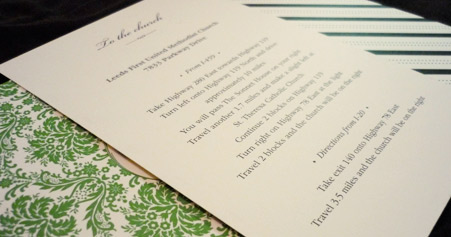 To the church
Leeds First United Methodist Church
7855 Parkway Drive
• From I-459 •
Take Highway 280 East towards Highway 119
Turn left onto Highway 119 North and drive
approximately 10 miles
You will pass The Sonnet House on your right
Travel another 1.7 miles and make a right at
St. Theresa Catholic Church
Continue 2 blocks on Highway 119
Turn right on Highway 78 East at the light
Travel 2 blocks and the church will be on the right
• Directions from I-20 •
Take exit 140 onto Highway 78 East
Travel 3.5 miles and the church will be on the right